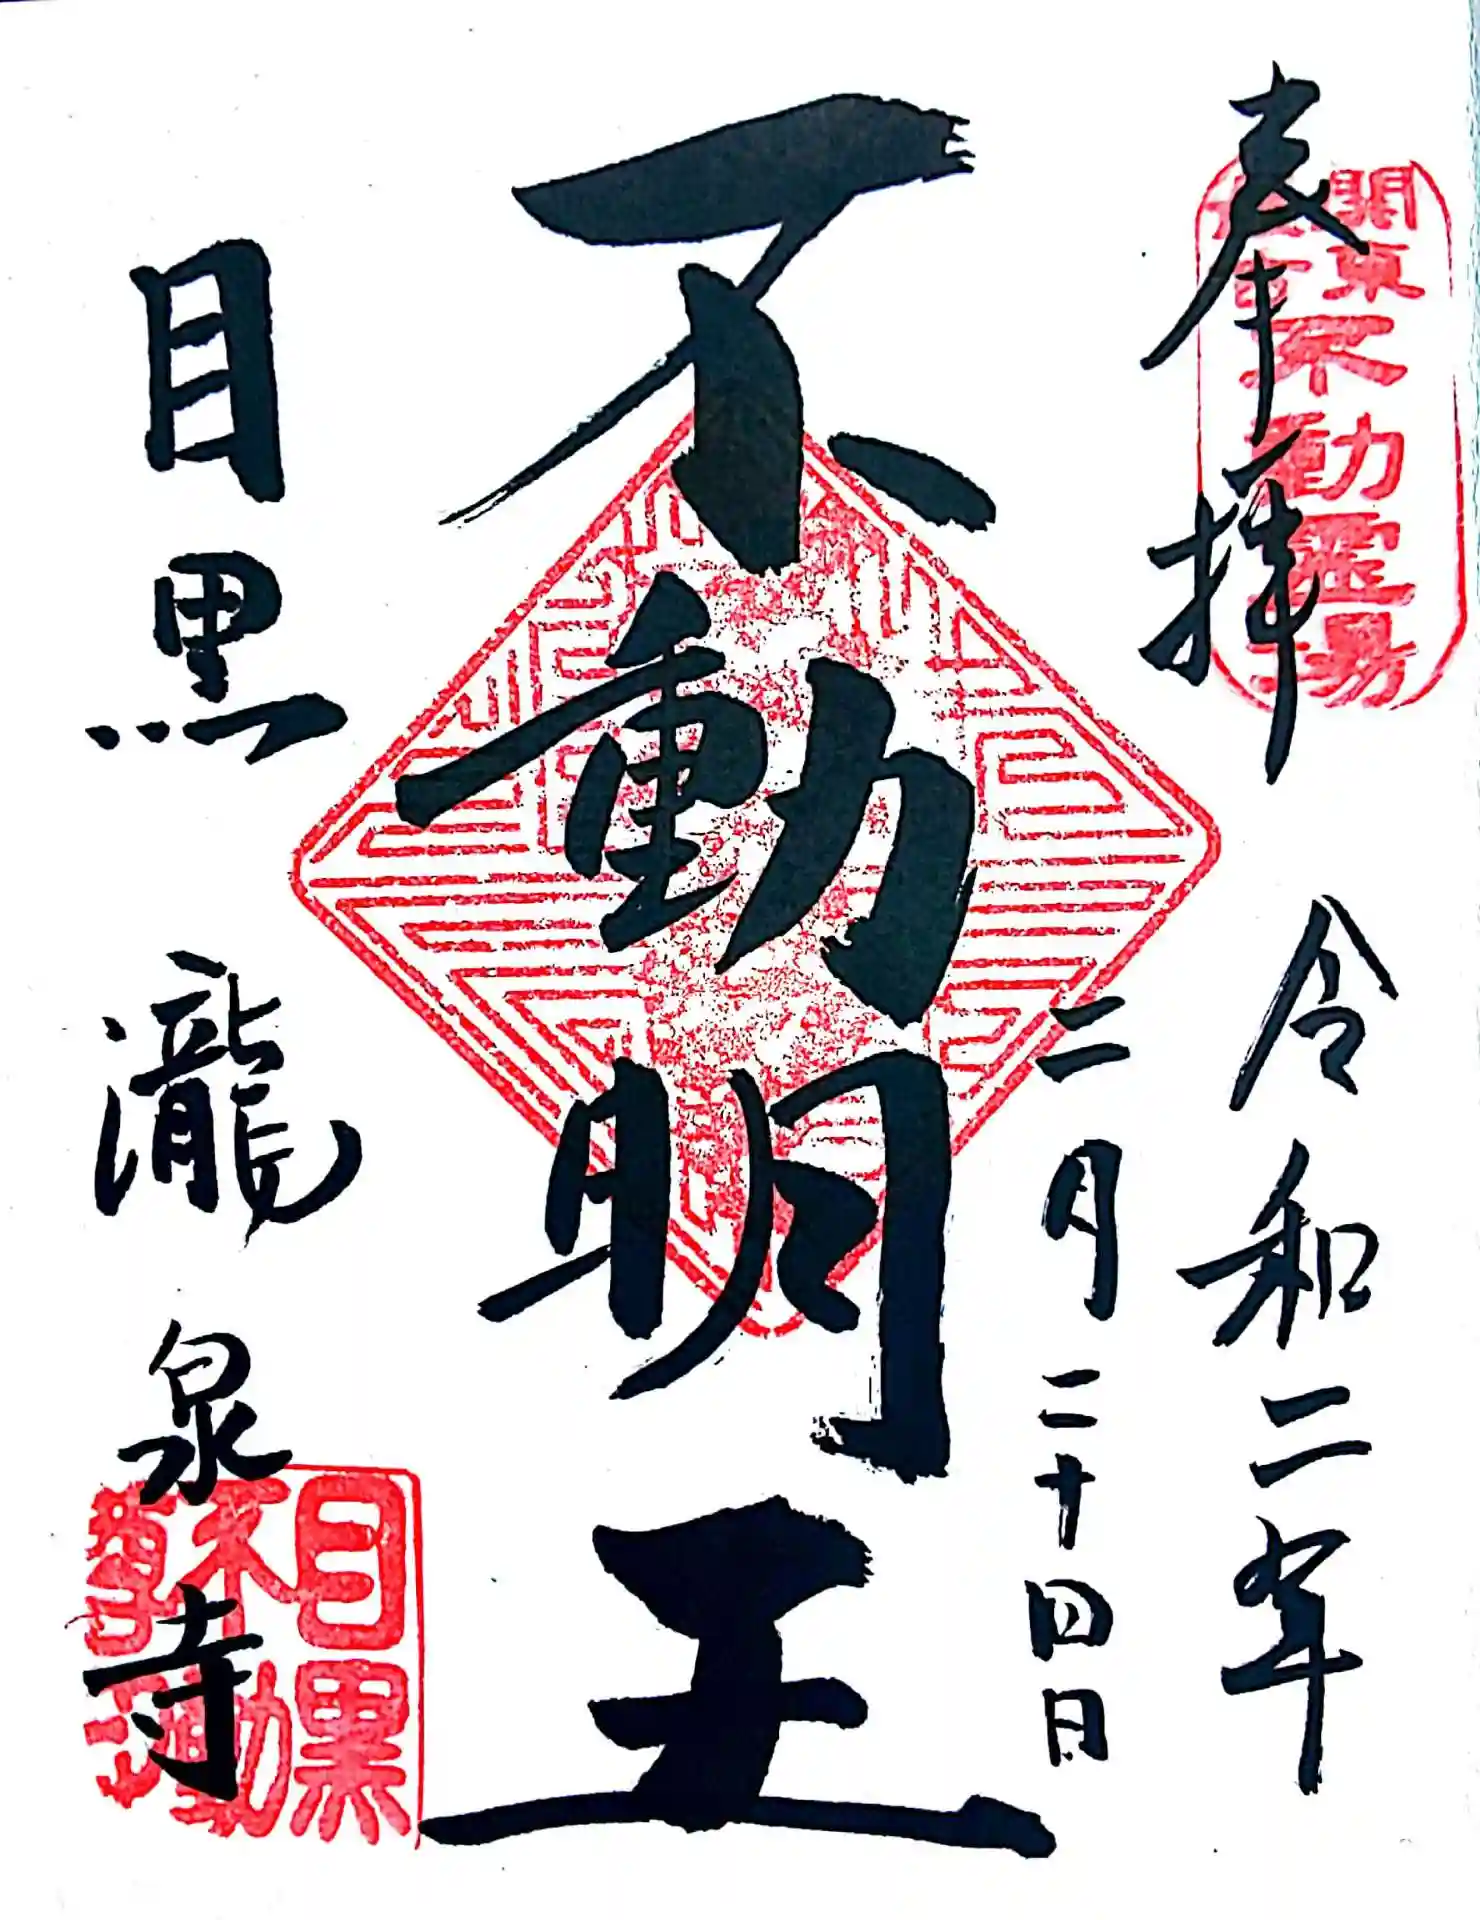 奉拝
令和二年
二月二十四日
不動明王
目黒 瀧泉寺
関東
不動霊場
目黒
不動